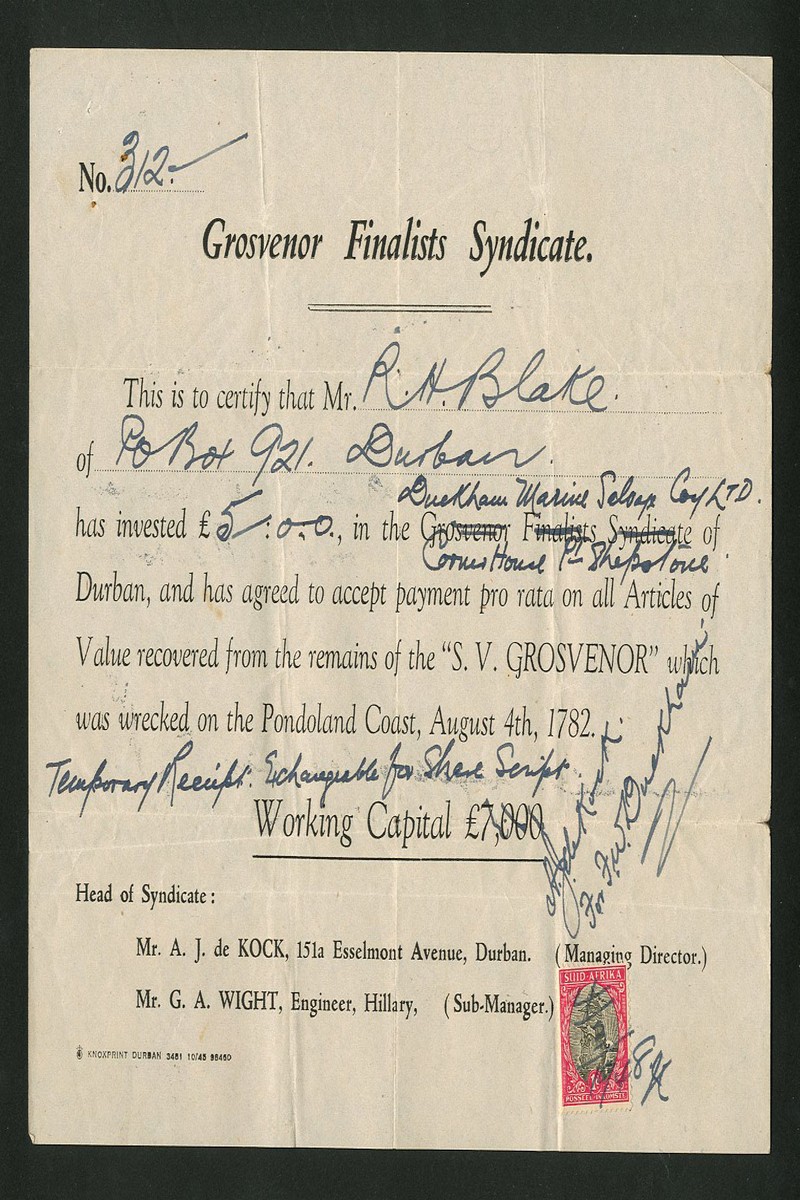 No. 312.
Grosvenor Finalists Syndicate.
This is to certify that Mr. R. H. Blake.
of PO Box 921. Durban.
Duckham Marine Salvage Coy LTD.
has invested £5:0.0., in the Grosvenor Finalists Syndicate of
House Pt Shepstone
Durban, and has agreed to accept payment pro rata on all Articles of
Value recovered from the remains of the “S. V. GROSVENOR” which
was wrecked on the Pondoland Coast, August 4th, 1782.
Temporary Receipt. Exchangeable for Share Script.
Working Capital £7,000
A. J. de Kock.
For F. W. Duckham.
Head of Syndicate:
Mr. A. J. de KOCK, 151a Esselmont Avenue, Durban. (Managing Director.)
Mr. G. A. WIGHT, Engineer, Hillary, (Sub-Manager.)
SUID-AFRIKA
1D
POSSEËL-INKOMSTE
KNOXPRINT DURBAN 3481 10/45 98460